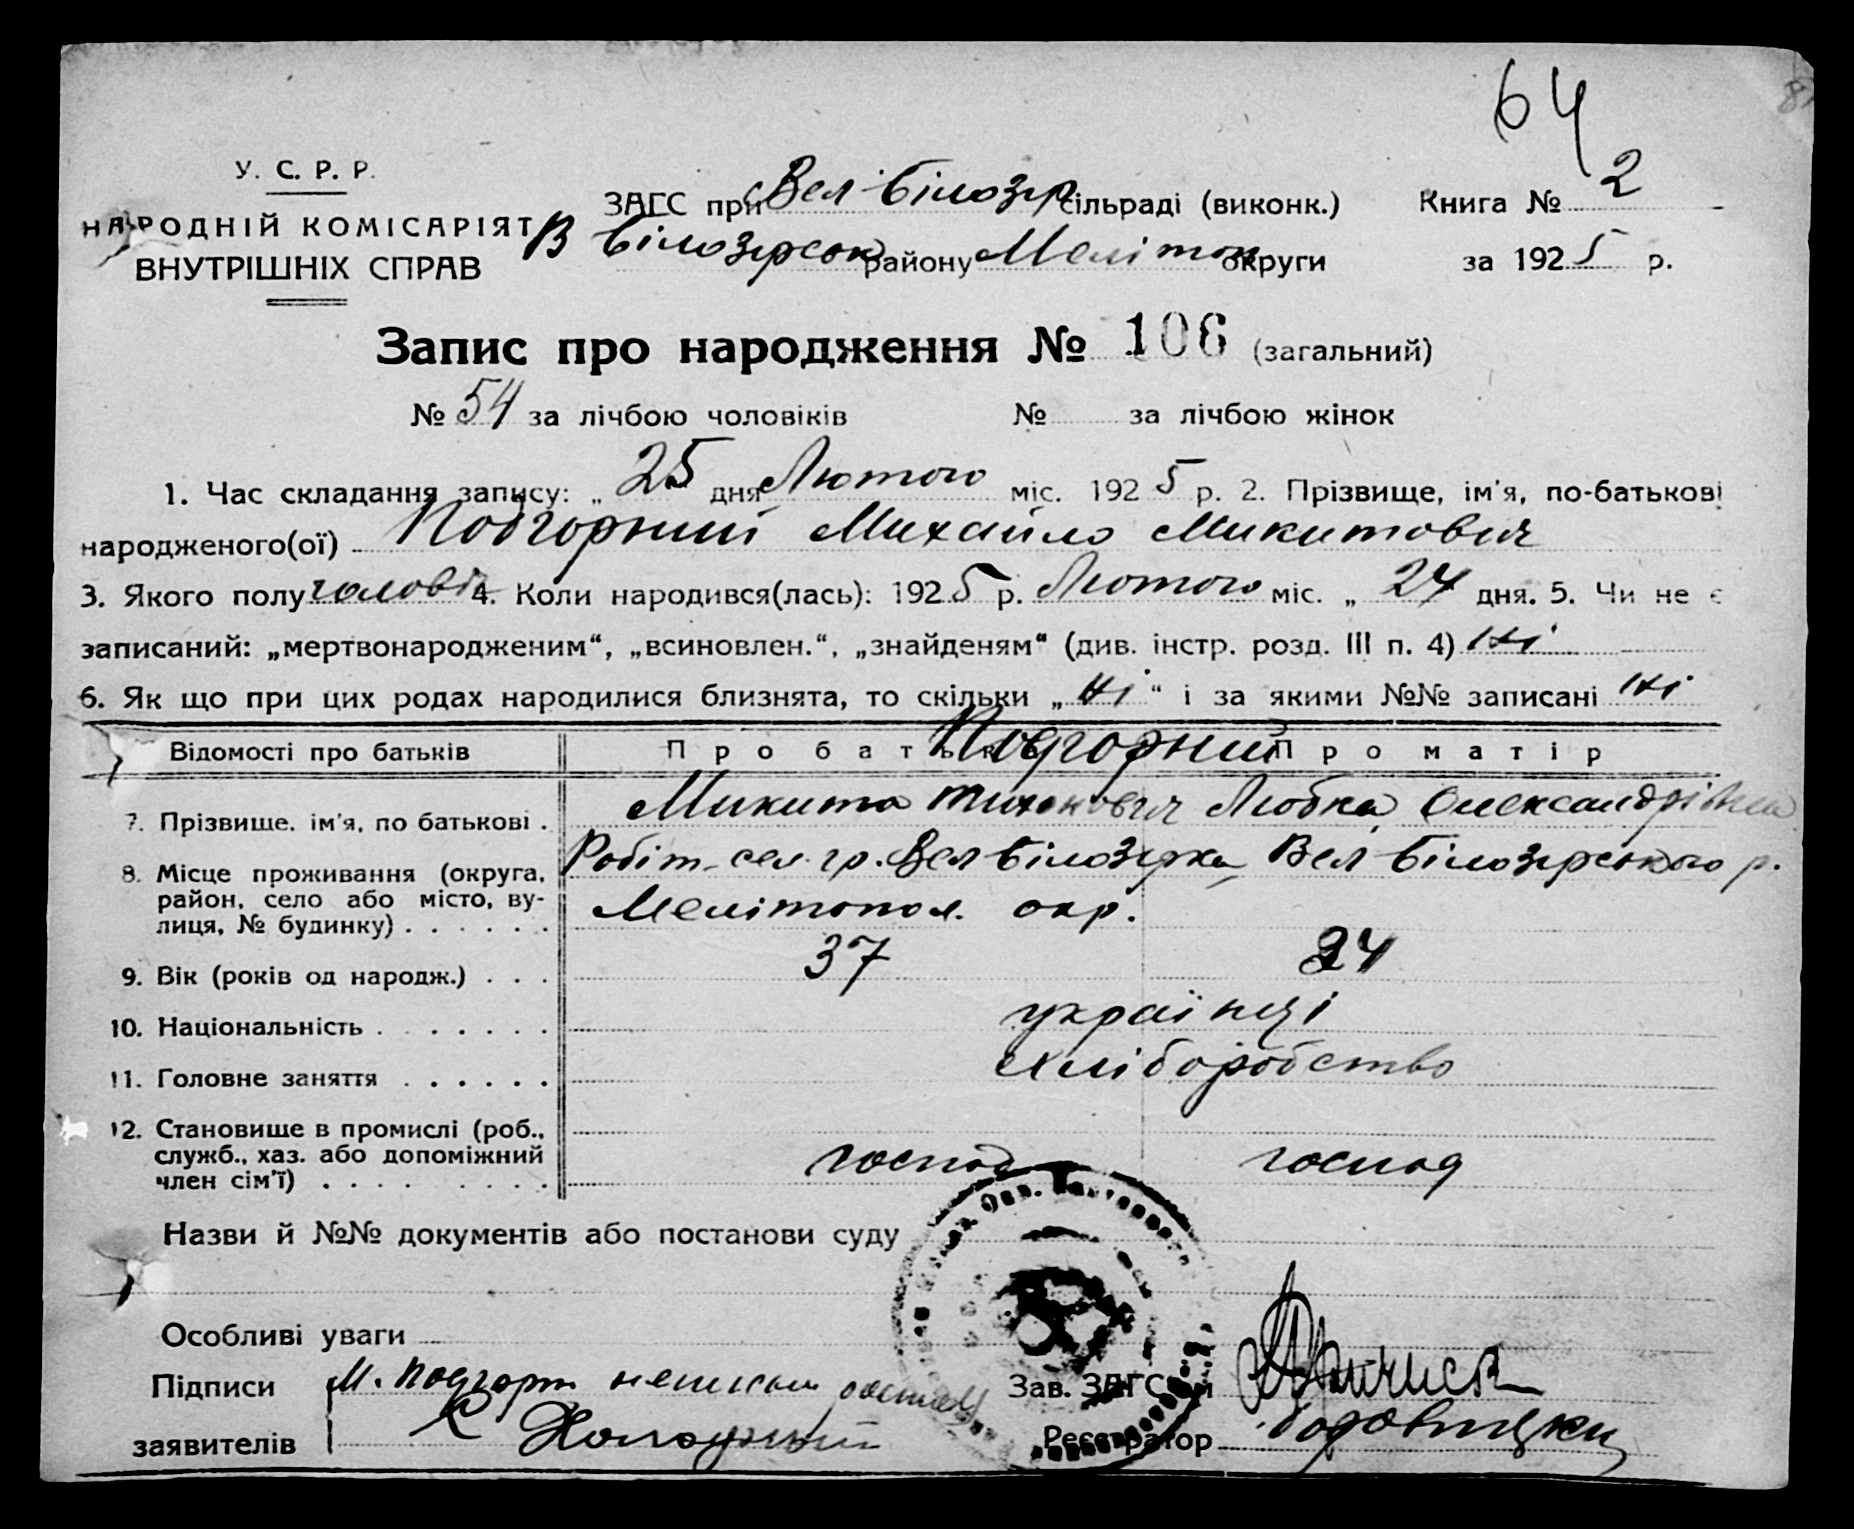 64
У. С. Р. Р.
ЗАГС при Вел Білозір сільраді (виконк.) Книга № 2
НАРОДНІЙ КОМІСАРІЯТ
В Білозірськ району Меліton округи за 1925 р.
ВНУТРІШНІХ СПРАВ
Запис про народження № 106 (загальний)
№ 54 за лічбою чоловіків № за лічбою жінок
1. Час складання запису: „ 25 дня Лютого міс. 1925 р. 2. Прізвище, ім'я, по-батькові
народженого(ої) Подгорний Михайло Микитович
3. Якого полу чоловіч 4. Коли народився(лась): 1925 р. Лютого міс. „ 24 дня. 5. Чи не є
записаний: „мертвонародженим“, „всиновлен.“, „знайденям“ (див. інстр. розд. III п. 4) ні
6. Як що при цих родах народилися близнята, то скільки „ ні “ і за якими №№ записані ні
Відомості про батьків Про батька Подгорний Про матір
7. Прізвище. ім'я, по батькові . Микита Тихонович Любка Олександрівна
8. Місце проживання (округа, Робіт. сел. гр. Вел Білозірка, Вел Білозірського р.
район, село або місто, ву-
лиця, № будинку) . . . . . . Мелітопол. окр.
9. Вік (років од народж.) . . . 37 24
10. Національність . . . . . . . українці
11. Головне заняття . . . . . . хліборобство
12. Становище в промислі (роб.,
служб., хаз. або допоміжний
член сім'ї) . . . . . . . . . господ господ
Назви й №№ документів або постанови суду
Особливі уваги
Підписи М. Подгорн Зав. ЗАГС'ом
заявителів Реєстратор